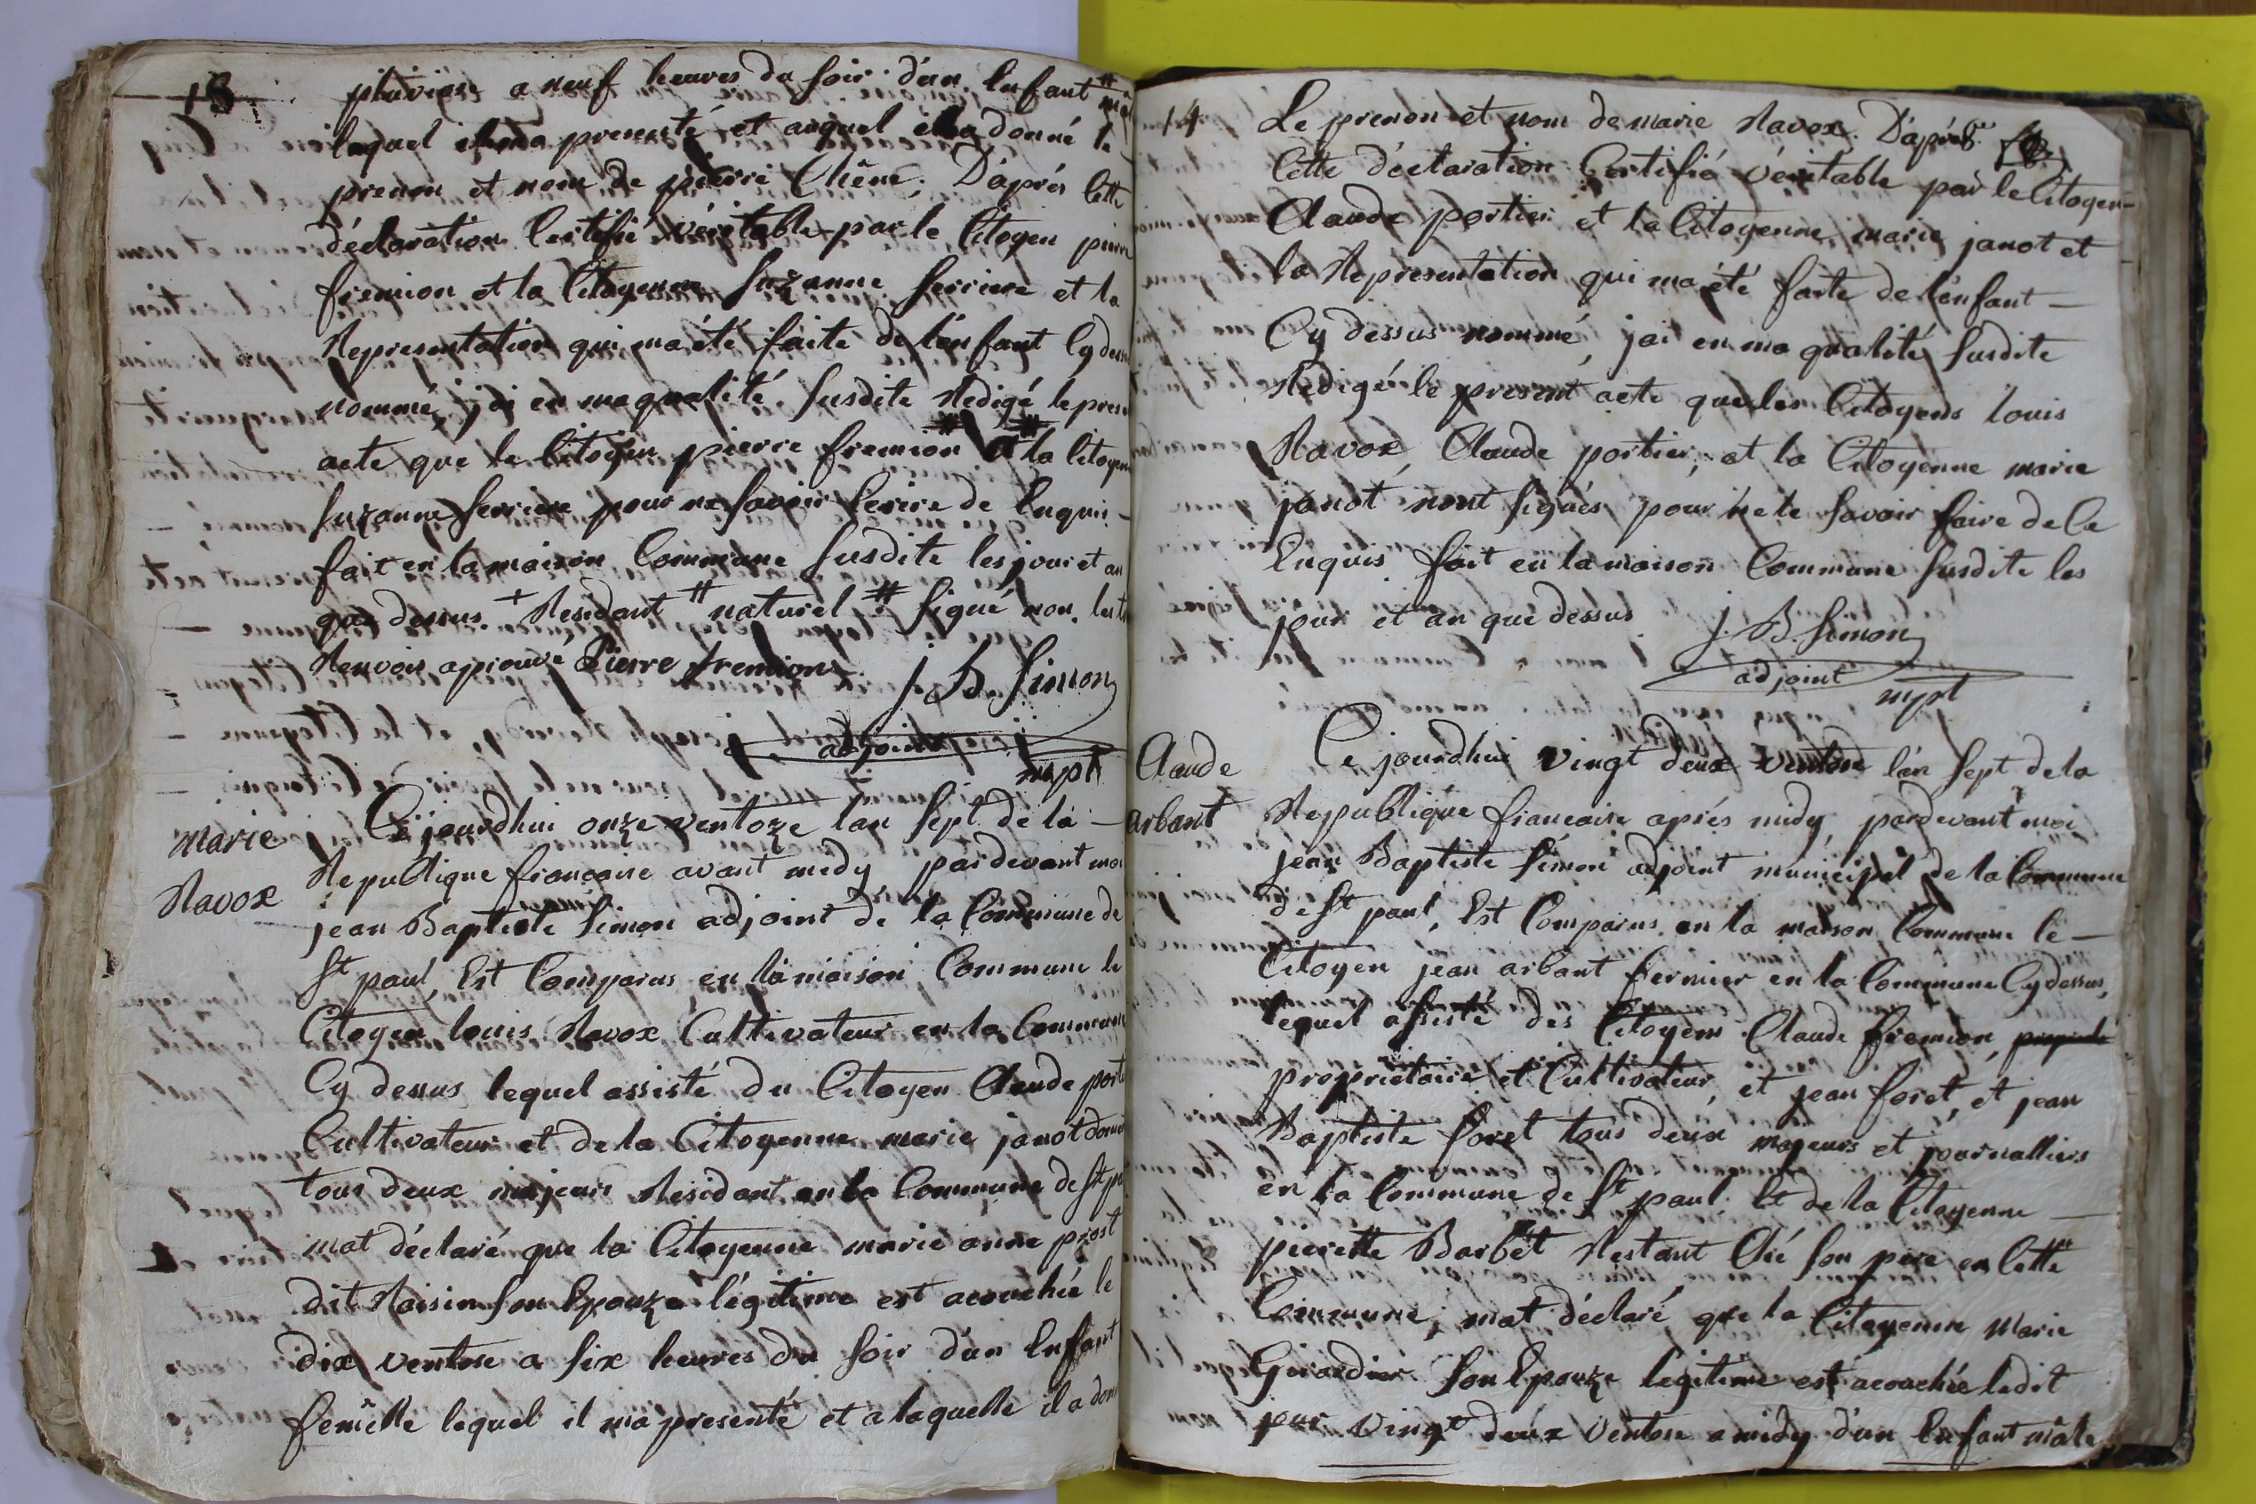 13
pluviose a neuf heures du soir d'un Enfant #
lequel il ma presenté et auquel il a donné le
prenon et nom de pierre Chêne. D'aprés Cette
déclaration Certifié véritable par le Citoyen pierre
fremion et la Citoyenne Suzanne ferriere et la
Representation qui ma été faite de l'enfant Cy dessus
nommé, j'ai en ma qualité Susdite Redigé le present
acte que le Citoyen pierre fremion # et # la Citoyenne
Suzanne ferriere pour ne savoir Ecrire de Enquis -
fait en la maison Commune Susdite les jour et an
que dessus. + Residant # naturel # signé non. les
Renvois aprouvé Pierre fremion
J. B. Simon
adjoint
mpl
marie
Ravox
Ce jourdhui onze ventoze l'an Sept de la -
Republique francaise avant midy pardevant moi
jean Baptiste Simon adjoint de la Commune de
St paul, Est Comparus en la maison Commune le
Citoyen louis Ravox Cultivateur en la Commune
Cy dessus lequel assisté du Citoyen Claude portier
Cultivateur et de la Citoyenne marie janot
tous deux majeurs Residant en la Commune de St
mat déclaré que la Citoyenne marie anne prost
dit Raisin son Epouze légitime est acouchée le
dix ventose a six heures du soir d'un Enfant
femelle lequel il ma presenté et a laquelle il a donné
14
Le prenon et nom de marie Ravox. D'aprés
Cette déclaration Certifié véritable par le Citoyen -
Claude portier et la Citoyenne marie janot et
la Representation qui ma été faite de l'enfant -
Cy dessus nommé, j'ai en ma qualité Susdite
Redigé le present acte que les Citoyens louis
Ravox, Claude portier, et la Citoyenne marie
janot n'ont signés pour ne le savoir faire de Ce
Enquis fait en la maison Commune Susdite les
jour et an que dessus
J. B. Simon
adjoint
mpl
Claude
arbant
Ce jourdhui vingt deux ventose l'an Sept de la
Republique francaise aprés midy, pardevant moi
jean Baptiste Simon adjoint municipal de la Commune
de St paul, Est Comparus en la maison Commune le -
Citoyen jean arbant fermier en la Commune Cy dessus,
lequel assisté des Citoyens Claude fremion,
propriétaire et Cultivateur, et jean foret, et jean
Baptiste foret tous deux majeurs et journalliers
en la Commune de St paul. Et de la Citoyenne -
pierrette Barbet Restant Ché son pere en Cette
Commune, mat déclaré que la Citoyenne Marie
Girardier son Epouze legitime est acouchée ledit
jour vingt deux ventose a midy d'un Enfant mâle